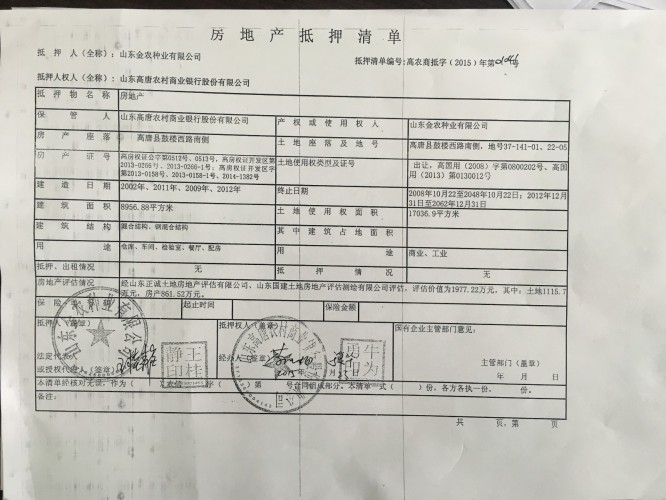 房地产抵押清单
抵 押 人（全称）：山东金农种业有限公司
抵押清单编号：高农商抵字（2015）年第 号
抵押人权人（全称）：山东高唐农村商业银行股份有限公司
抵 押 物 名 称 房地产
保 管 人 山东高唐农村商业银行股份有限公司 产 权 或 使 用 权 人 山东金农种业有限公司
房 产 座 落 高唐县鼓楼西路南侧 土 地 座 落 及 地 号 高唐县鼓楼西路南侧，地号37-141-01、22-05
房 产 证 号 高房权证公字第0512号、0513号，高房权证开发区第 土地使用权类型及证号 出让，高国用（2008）字第0800202号、高国
2013-0266号、2013-0266-1号；高房权证开发区字 用（2013）第0130012号
第2013-0158号、2013-0158-1号、2014-1382号
建 造 日 期 2002年、2011年、2009年、2012年 终止日期 2008年10月22至2048年10月22日；2012年12月
31日至2062年12月31日
建 筑 面 积 8956.88平方米 土 地 使 用 权 面 积 17036.9平方米
建 筑 结 构 混合结构、钢混合结构 其 中 建 筑 占 地 面 积
用 途 仓库、车间、检验室、餐厅、配房 用 途 商业、工业
抵押、出租情况 无 抵 押 情 况 无
房地产评估情况 经山东正诚土地房地产评估有限公司、山东国建土地房地产评估测绘有限公司评估，评估价值为1977.22万元，其中：土地1115.7
万元，房产861.52万元。
保 险 单 号 起止时间 保险金额
抵押人（盖章） 抵押权人（盖章） 国有企业主管部门意见：
法定代表人 经办人（签章） 主管部门（盖章）
或授权代理人（签章） 2015 年 月 年 月 日
本清单经核对无误，作为（ ）农信 字（ ）第 号合同组成部分。本清单一式（ ）份，各方各执一份， 份。
备注：
共 页，第 页